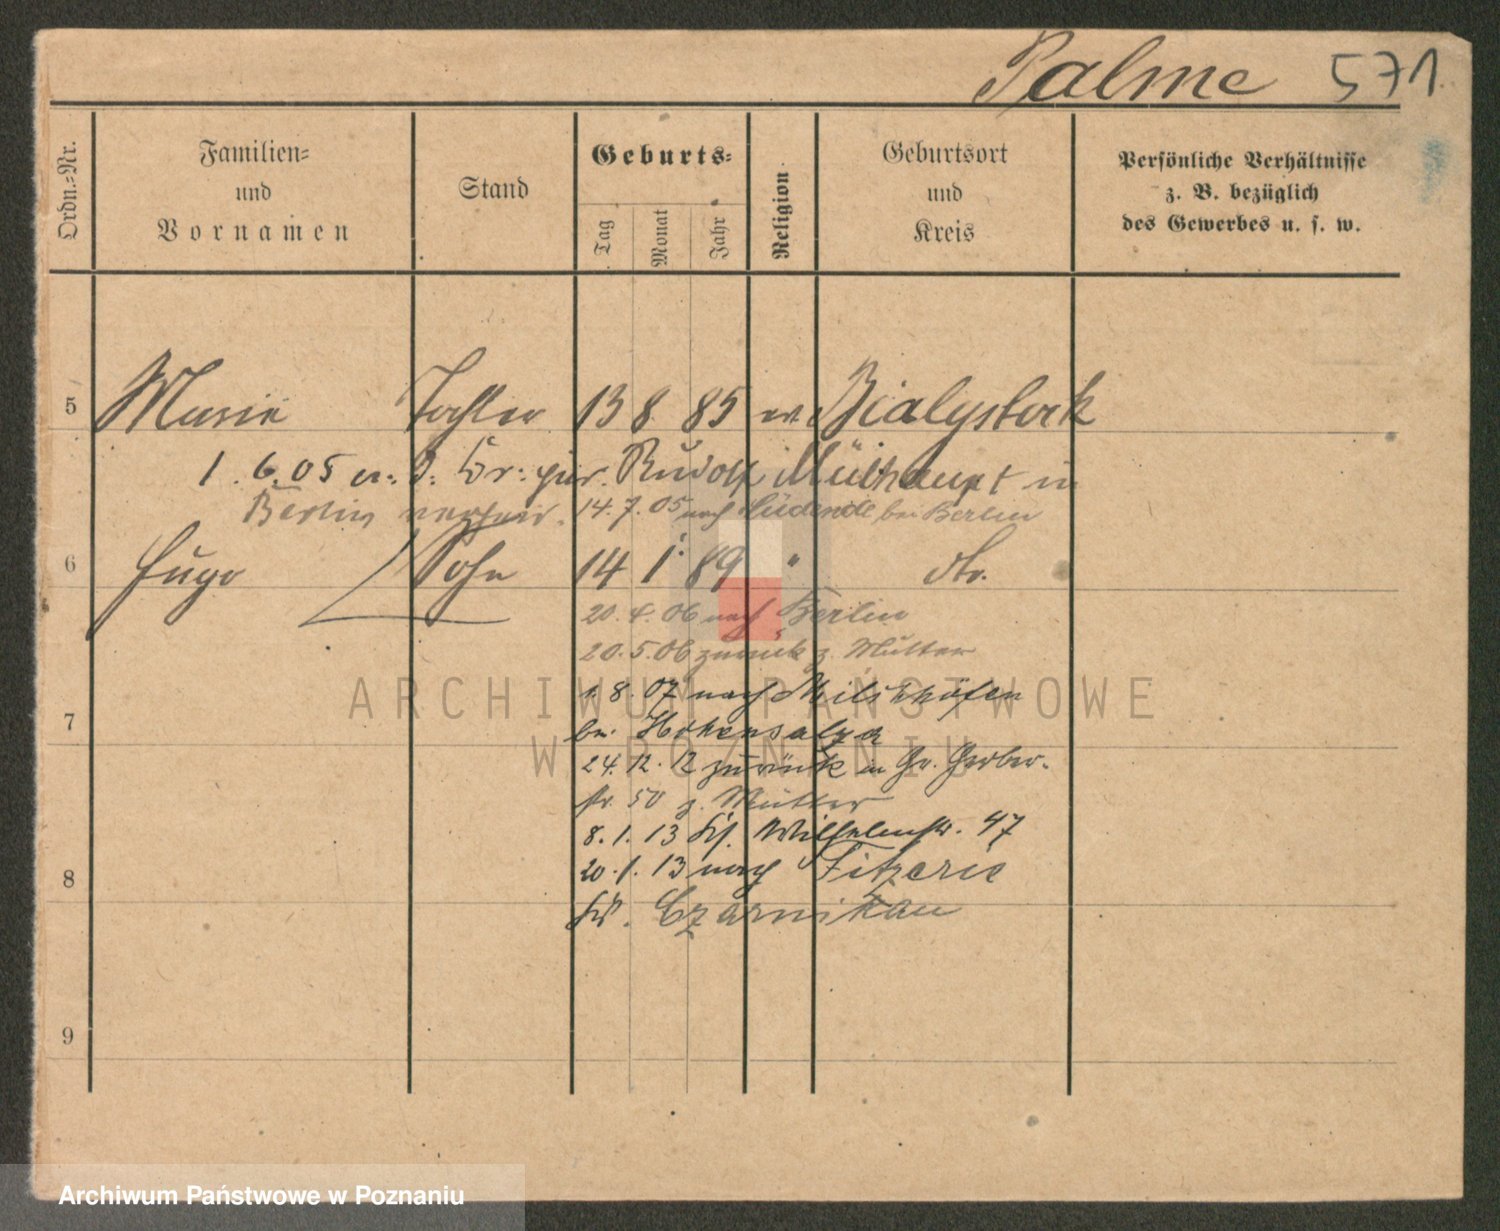 Palme 571.
Ordn.-Nr.
Familien-
und
Vornamen
Stand
Geburts-
Tag
Monat
Jahr
Religion
Geburtsort
und
Kreis
Persönliche Verhältnisse
z. B. bezüglich
des Gewerbes u. s. w.
5 Marie Tochter 13 8 85 ev. Bialystock
1.6.05 Rudolf Mülhaupt in
Berlin verheir. 14.7.05 nach Südende bei Berlin
6 Hugo Sohn 14 1 89 " dto.
20.4.06 nach Berlin
20.5.06 zurück z. Mutter
1.8.07 nach Milchhöfen
bei Hohensalza
7
24.12.12 zurück in Gr. Gerber-
str. 50 z. Mutter
8.1.13 Wilhelmstr. 47
8
20.1.13 nach Fitzerie
Czarnikau
9
ARCHIWUM PAŃSTWOWE
W POZNANIU
Archiwum Państwowe w Poznaniu